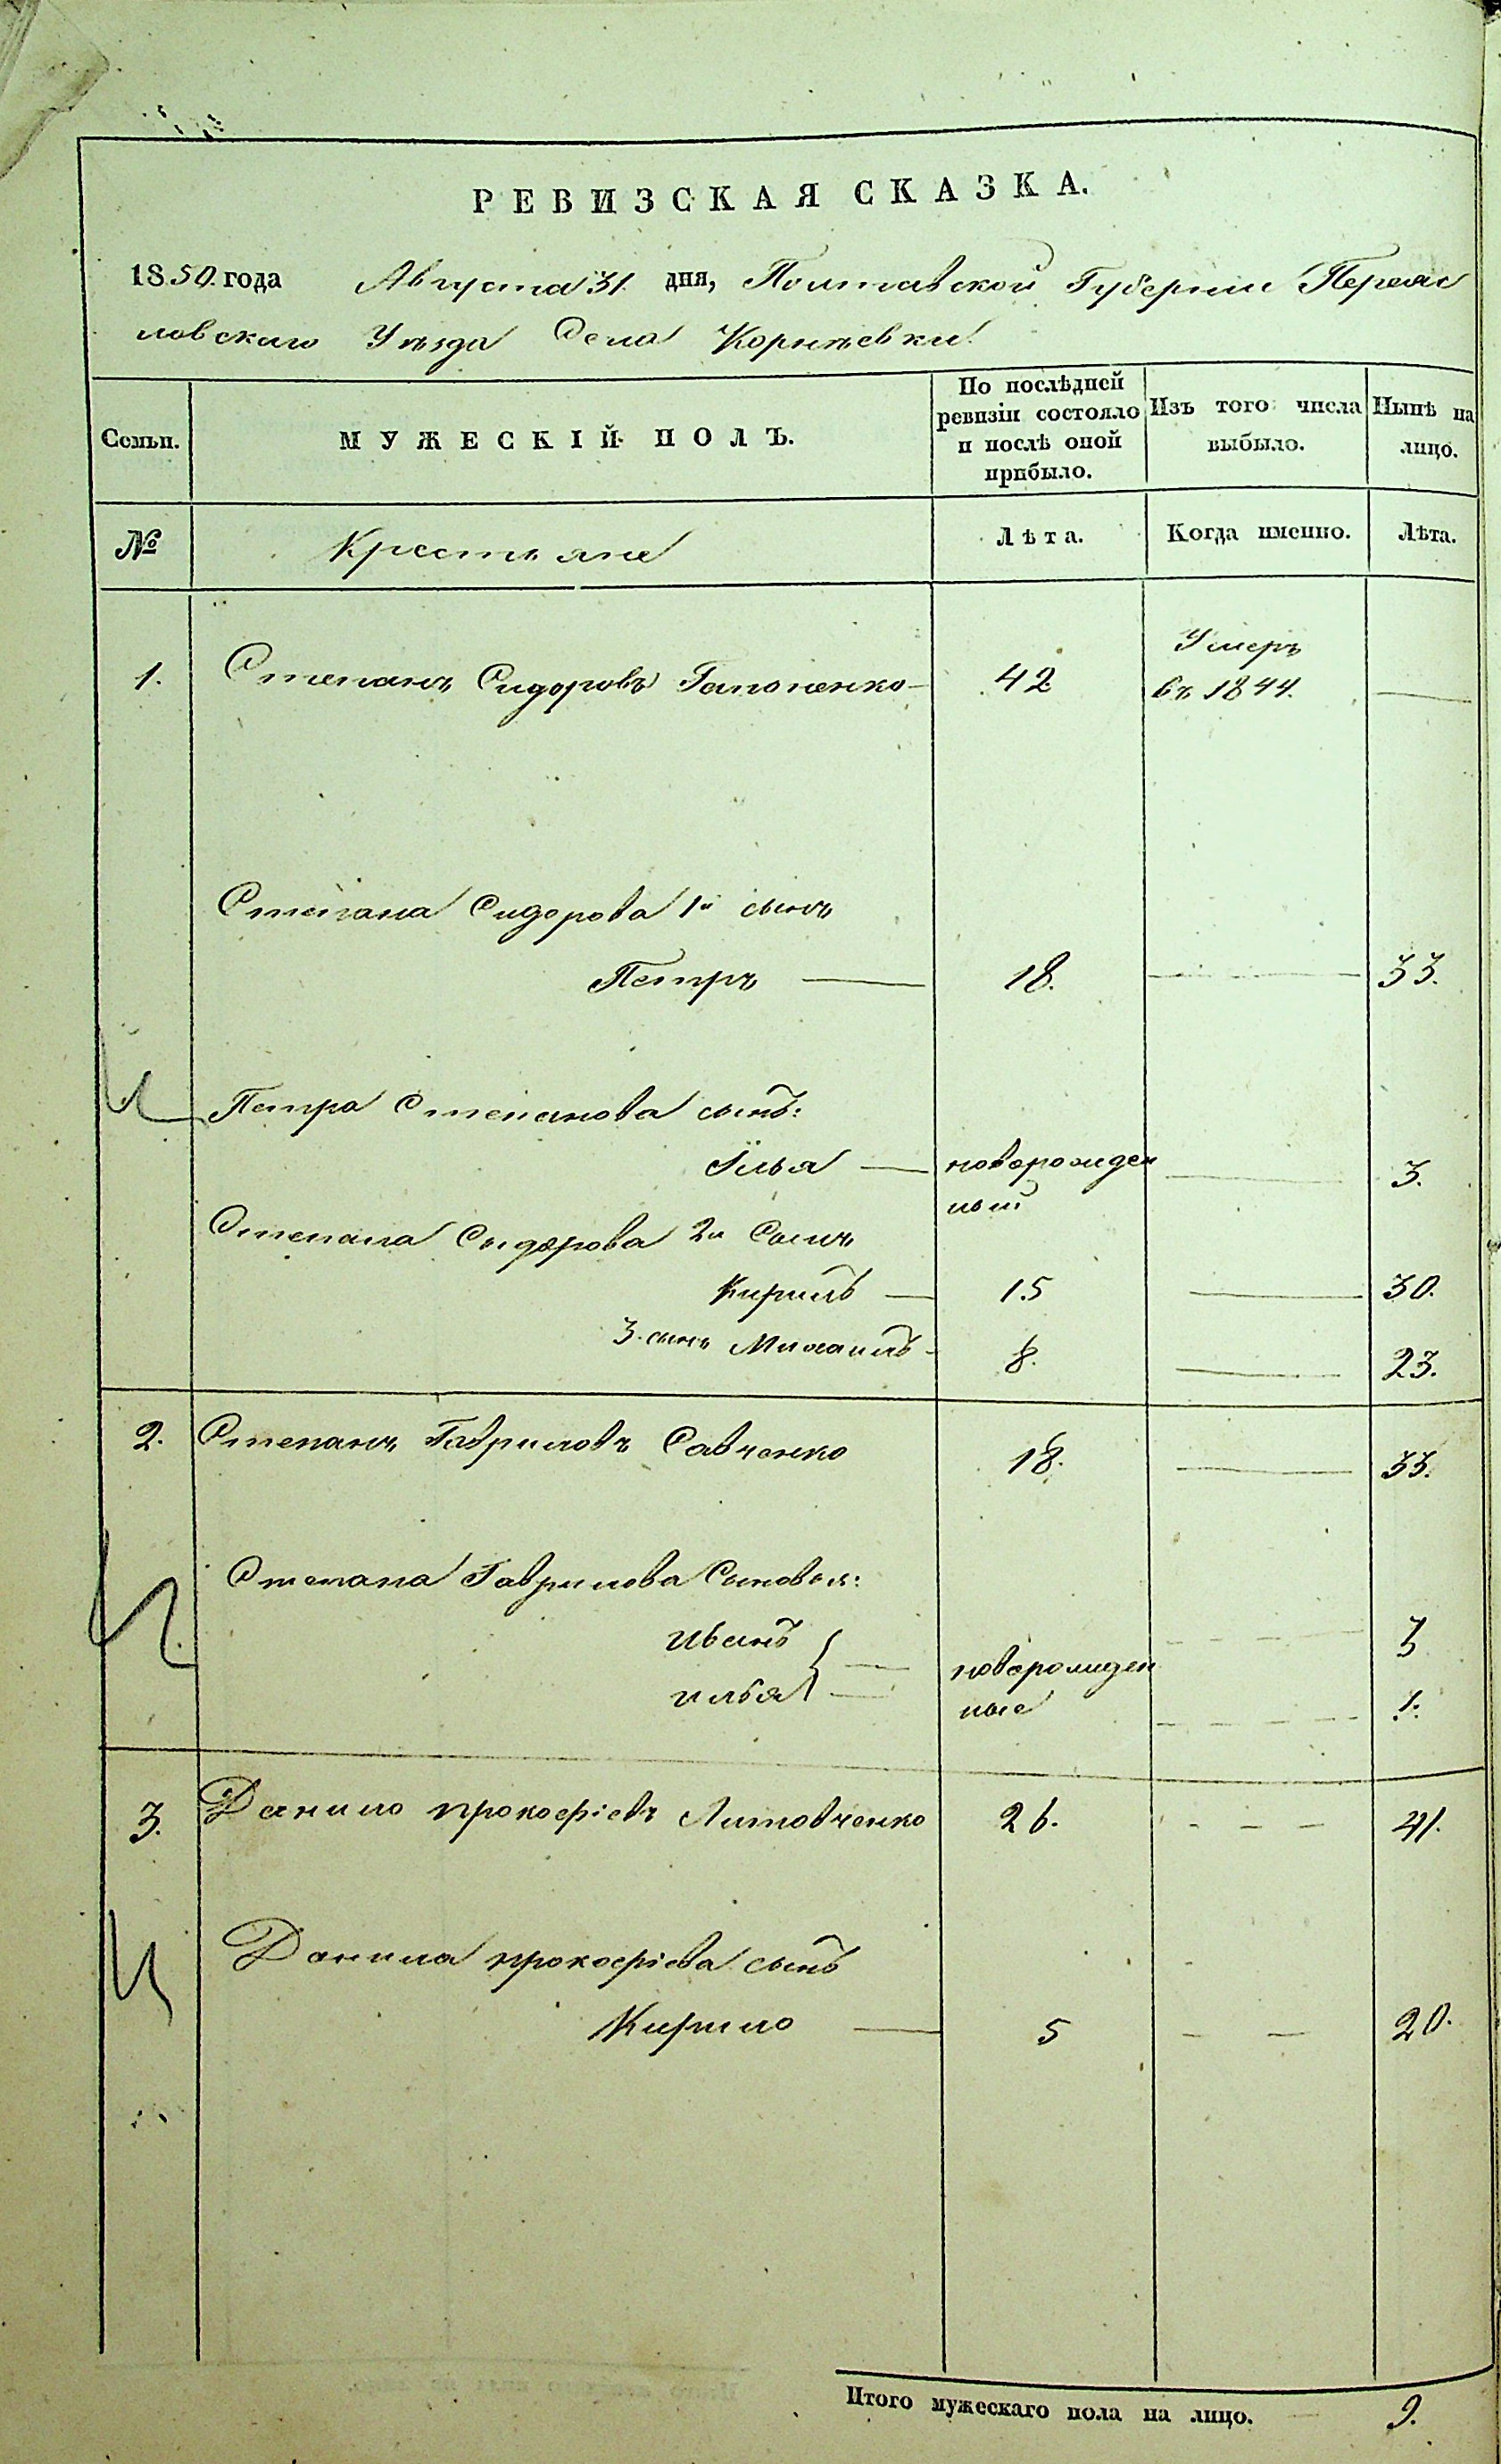 РЕВИЗСКАЯ СКАЗКА.
1850. года Августа 31. дня, Полтавской Губернии Переяс
ловскаго Уѣзда Села Корнѣевки.
Семьи.
МУЖЕСКІЙ ПОЛЪ.
По послѣдней
ревизіи состояло
и послѣ оной
прибыло.
Изъ того числа
выбыло.
Нынѣ на
лицо.
№ Крестьяне Лѣта. Когда именно. Лѣта.
Умеръ
1. Степанъ Сидоровъ Гапоненко 42 въ 1844.
Степана Сидорова 1й сынъ
Петръ 18. 33.
Петра Степанова сынъ:
Илья новорожден 3.
ный
Степана Сидорова 2й Сынъ
Кирилъ 15 30.
3. сынъ Михаилъ 8. 23.
2. Степанъ Гавриловъ Савченко 18. 33.
Степана Гаврилова Сыновья:
Иванъ 3
илья новорожден 1.
ные
3. Данило прокофіевъ Литовченко 26. 41.
Данила прокофіева сынъ
Кирило 5 20.
Итого мужескаго пола на лицо. 9.